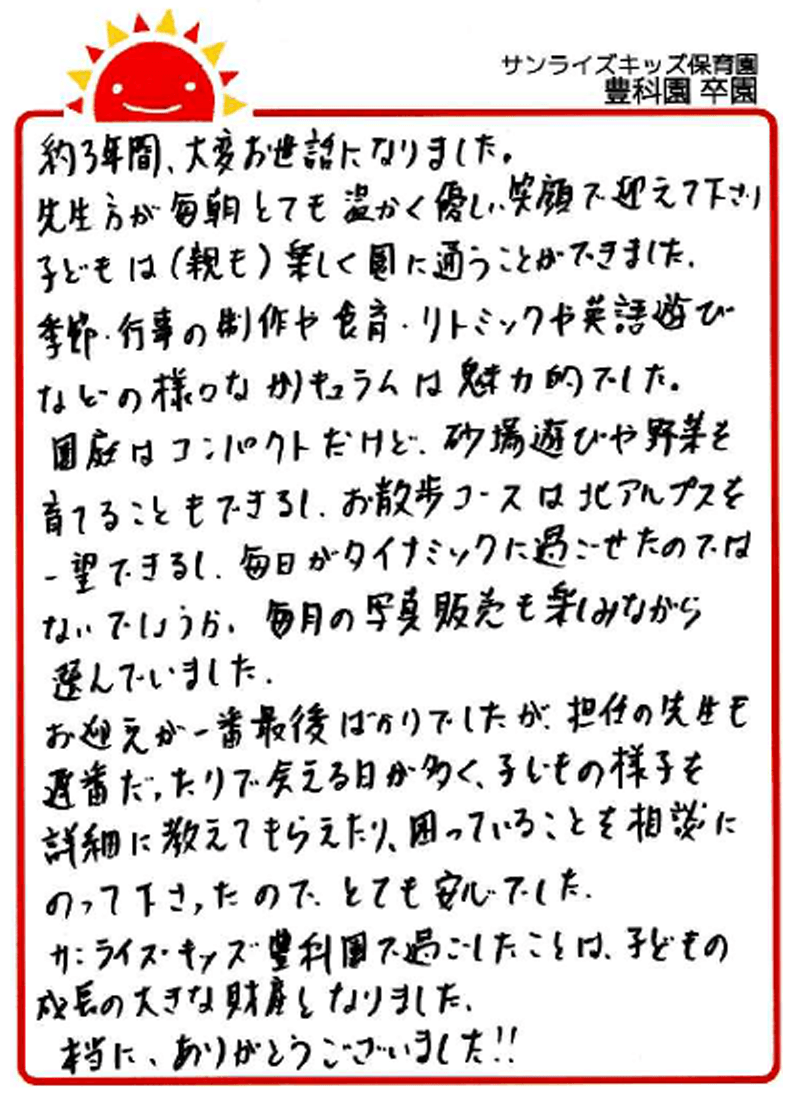 サンライズキッズ保育園
豊科園 卒園
約3年間、大変お世話になりました。
先生方が毎朝とても温かく優しい笑顔で迎えて下さり
子どもは(親も)楽しく園に通うことができました。
季節・行事の制作や食育・リトミックや英語遊び
などの様々なカリキュラムは魅力的でした。
園庭はコンパクトだけど、砂場遊びや野菜を
育てることもできるし、お散歩コースは北アルプスを
一望できるし、毎日がダイナミックに過ごせたのでは
ないでしょうか。毎月の写真販売も楽しみながら
選んでいました。
お迎えが一番最後ばかりでしたが、担任の先生も
遅番だったりで会える日が多く、子どもの様子を
詳細に教えてもらえたり、困っていることを相談に
のって下さったので、とても安心でした。
サンライズ・キッズ豊科園で過ごしたことは、子どもの
成長の大きな財産となりました。
本当に、ありがとうございました!!